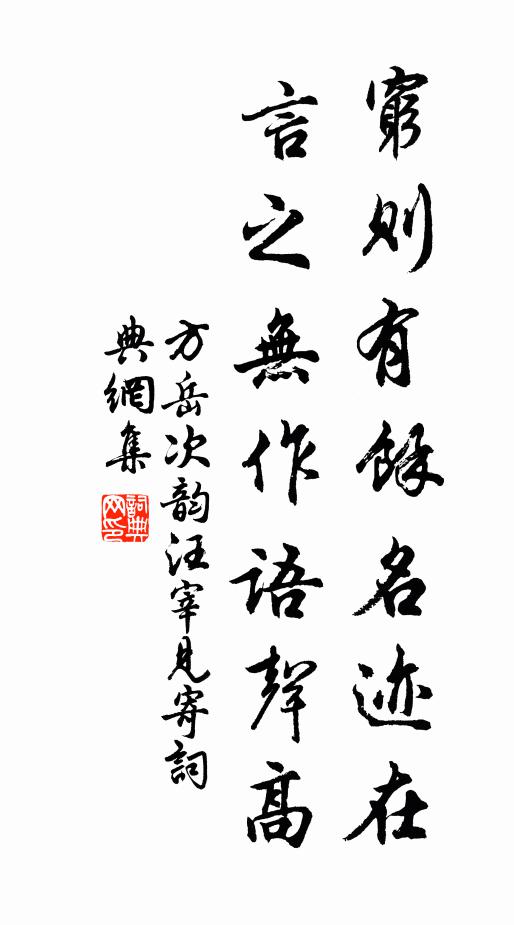 窮則有餘名迹在
言之無作語聲高
方岳次韵汪宰見寄詞
典網集
詞典网印